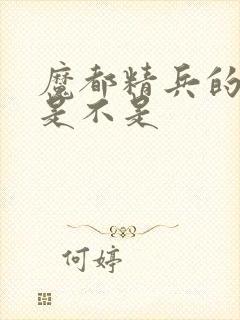 魔都精兵的
是不是
何婷